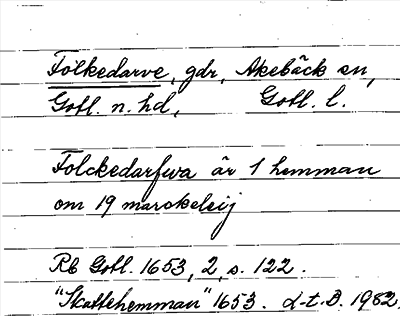 Folkedarve, gdr, Akebäck sn,
Gotl. n. hd, Gotl. l.
Folckedarfwa är 1 hemman
om 19 marckeleij
Rb Gotl. 1653, 2, s. 122.
"Skattehemman" 1653. L-t. D. 1982.